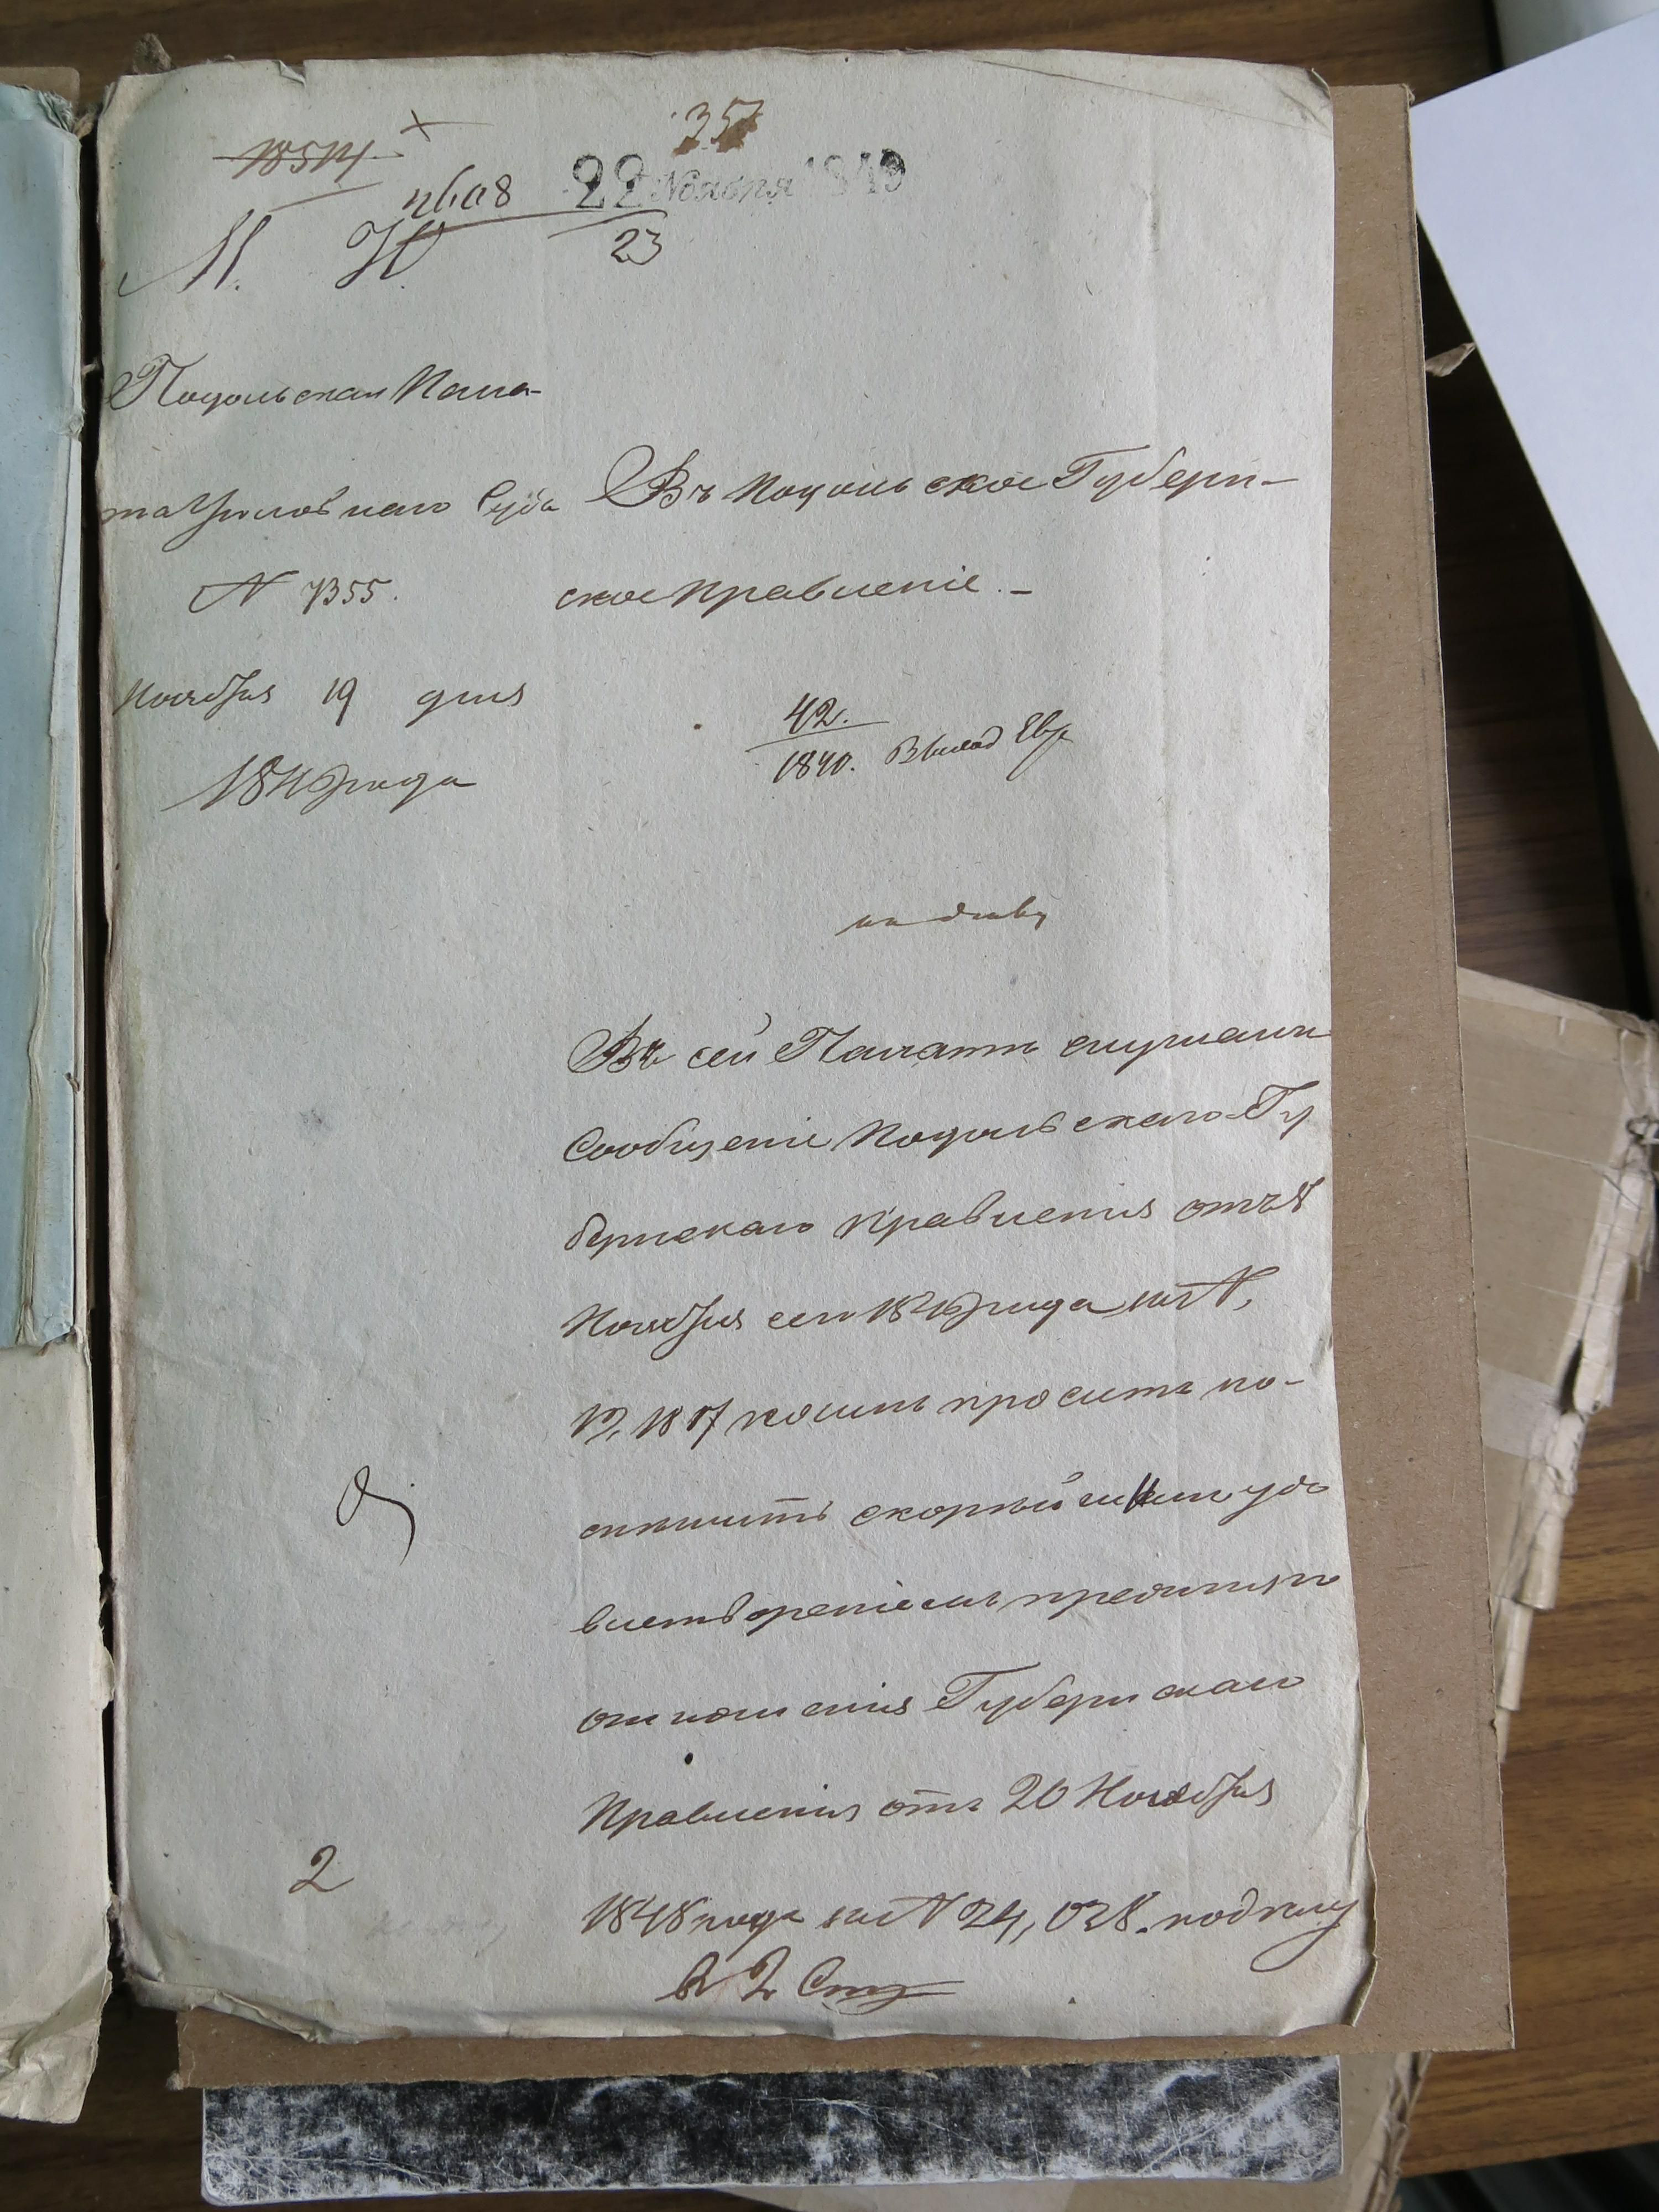 357
18514
22 Ноября 1849
23
М. Ю.
Подольская Пала-
та Уголовнаго Суда
N 7355.
Ноября 19 дня
1849 года
Въ Подольское Губерн-
ское Правленіе. -
42.
1840.
Въ сей Палатѣ слушали
Сообщеніе Подольскаго Гу
бернскаго Правленія отъ 8
Ноября сего 1849 года за N,
коимъ проситъ по-
спѣшить скорѣйшимъ удо
влетвореніемъ предмѣта
отношенія Губернскаго
Правленія отъ 20 Ноября
1848 года за N 24,028. по дѣлу
2
в 2 Сто